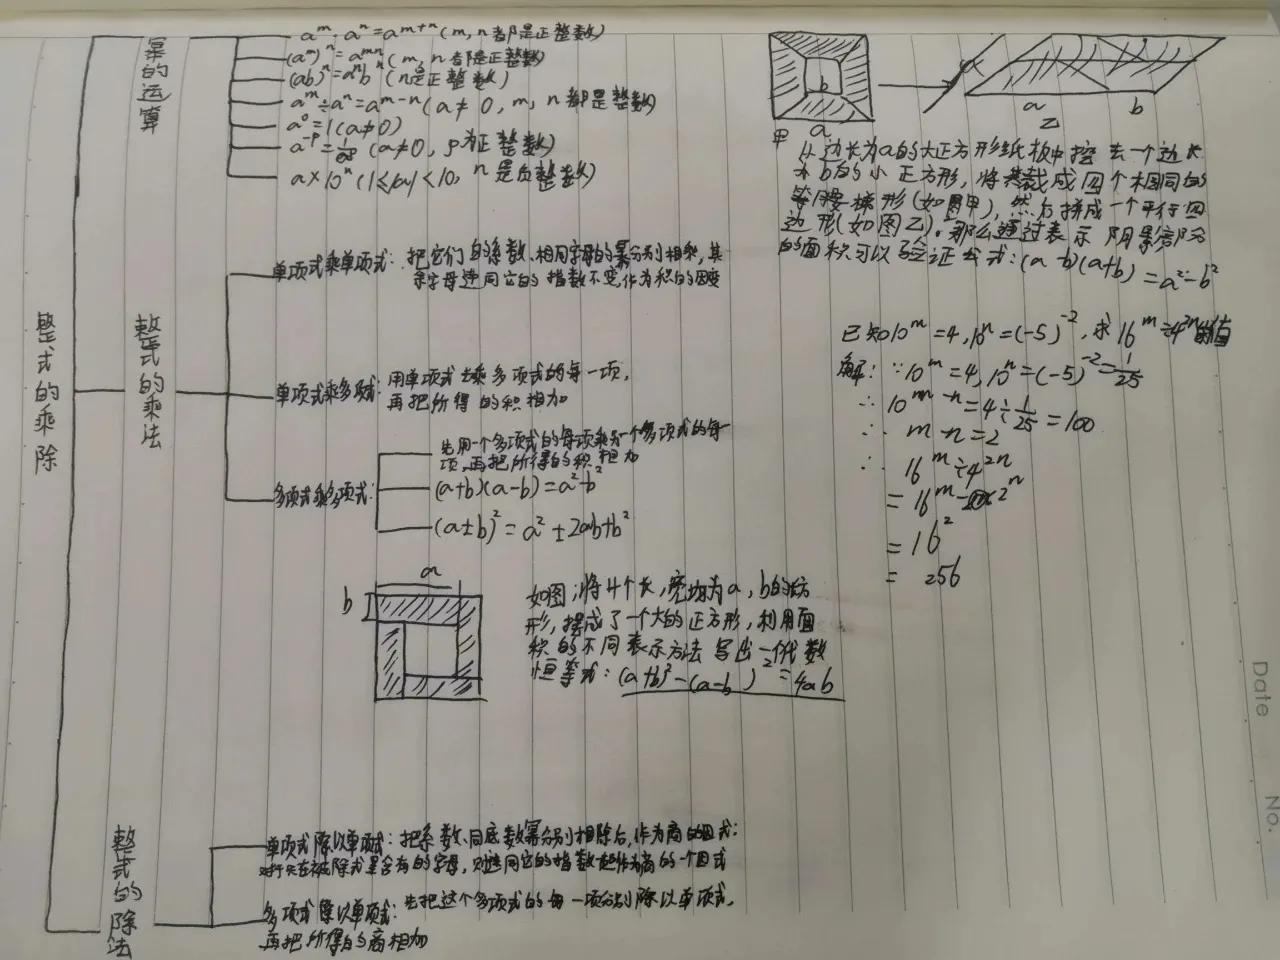 整式的乘除
幂的运算
aᵐ·aⁿ=aᵐ⁺ⁿ(m,n都是正整数)
(aᵐ)ⁿ=aᵐⁿ(m,n都是正整数)
(ab)ⁿ=aⁿbⁿ(n是正整数)
aᵐ÷aⁿ=aᵐ⁻ⁿ(a≠0,m,n都是整数)
a⁰=1(a≠0)
(a≠0,p为正整数)
a×10ⁿ(1≤|a|<10,n是负整数)
整式的乘法
单项式乘单项式:把它们的系数、相同字母的幂分别相乘,其
余字母连同它的指数不变,作为积的因
单项式乘多项式:用单项式去乘多项式的每一项,
再把所得的积相加
多项式乘多项式:
先用一个多项式的每项乘另一个多项式的每一
项,再把所得的积相加
(a+b)(a-b)=a²-b²
(a±b)²=a²±2ab+b²
a
b
如图,将4个长,宽均为a,b的
形,摆成了一个大的正方形,利用面
积的不同表示方法写出一代数
恒等式:(a+b)²-(a-b)²=4ab
整式的除法
单项式除以单项式:把系数、同底数幂分别相除后,作为商的因式;
对于只在被除式里含有的字母,则连同它的指数一起作为商的一个因式
多项式除以单项式:先把这个多项式的每一项分别除以单项式,
再把所得的商相加
b
a
甲
a
b
乙
从边长为a的大正方形纸板中挖去一个边长
为b的小正方形,将其裁成四个相同的
等腰梯形(如图甲),然后拼成一个平行四
边形(如图乙)。那么通过表示阴影部分
的面积可以验证公式:(a-b)(a+b)=a²-b²
已知10ᵐ=4,10ⁿ=(-5)⁻²,求16ᵐ÷4²ⁿ的值
解:∵10ᵐ=4,10ⁿ=(-5)⁻²=1/25
∴10ᵐ⁻ⁿ=4÷1/25=100
∴m-n=2
∴16ᵐ÷4²ⁿ
=16²
=256
Date
No.